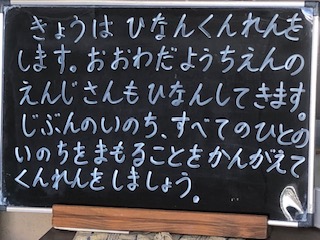 きょうは ひなんくんれんを
します。おおわだようちえんの
えんじさんもひなんしてきます。
じぶんのいのち、すべてのひとの
いのちをまもることをかんがえて
くんれんをしましょう。